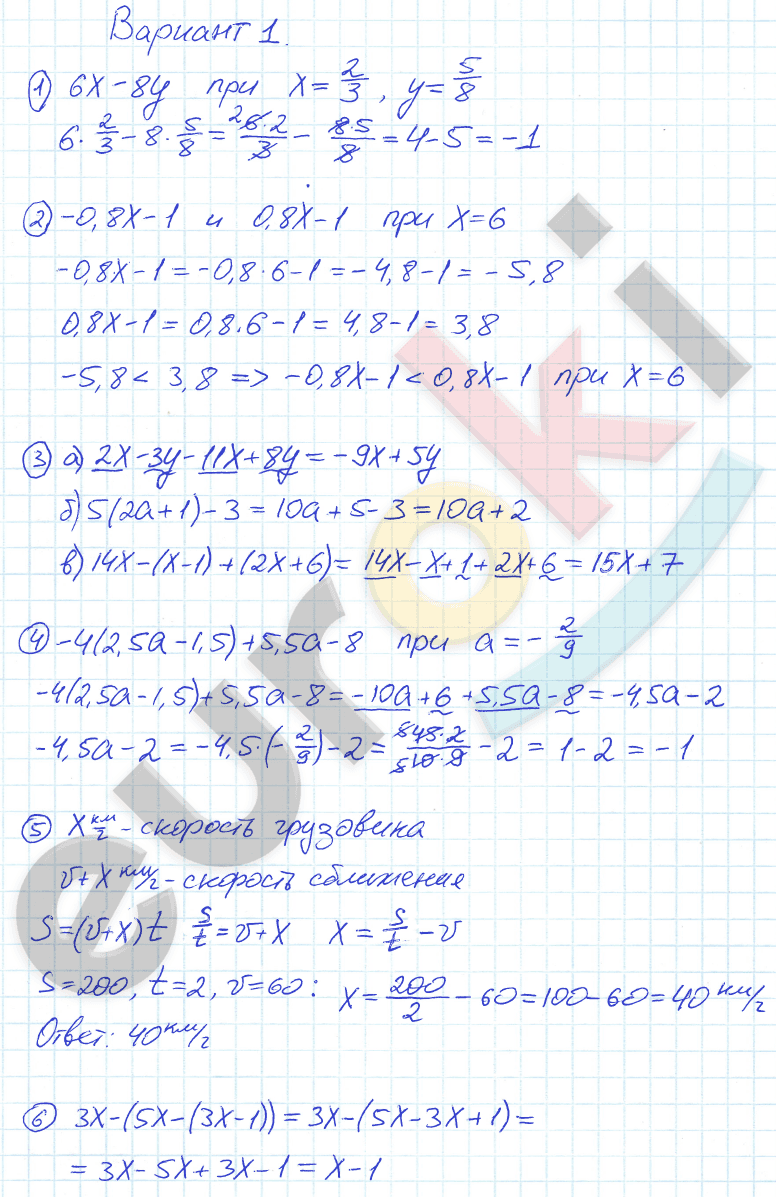 Вариант 1.
① 6x-8y при x=2/3, y=5/8
6·2/3-8·5/8=²6·2/3-8·5/8=4-5=-1
② -0,8x-1 и 0,8x-1 при x=6
-0,8x-1=-0,8·6-1=-4,8-1=-5,8
0,8x-1=0,8·6-1=4,8-1=3,8
-5,8<3,8=>-0,8x-1<0,8x-1 при x=6
③ а) 2x-3y-11x+8y=-9x+5y
б) 5(2a+1)-3=10a+5-3=10a+2
в) 14x-(x-1)+(2x+6)=14x-x+1+2x+6=15x+7
④ -4(2,5a-1,5)+5,5a-8 при a=-2/9
-4(2,5a-1,5)+5,5a-8=-10a+6+5,5a-8=-4,5a-2
-4,5a-2=-4,5·(-2/9)-2=45·2/10·9-2=1-2=-1
⑤ x км/г-скорость грузовика
v+x км/г-скорость сближения
S=(v+x)t S/t=v+x x=S/t-v
S=200, t=2, v=60: x=200/2-60=100-60=40 км/г
Ответ: 40 км/г
⑥ 3x-(5x-(3x-1))=3x-(5x-3x+1)=
=3x-5x+3x-1=x-1
euroki